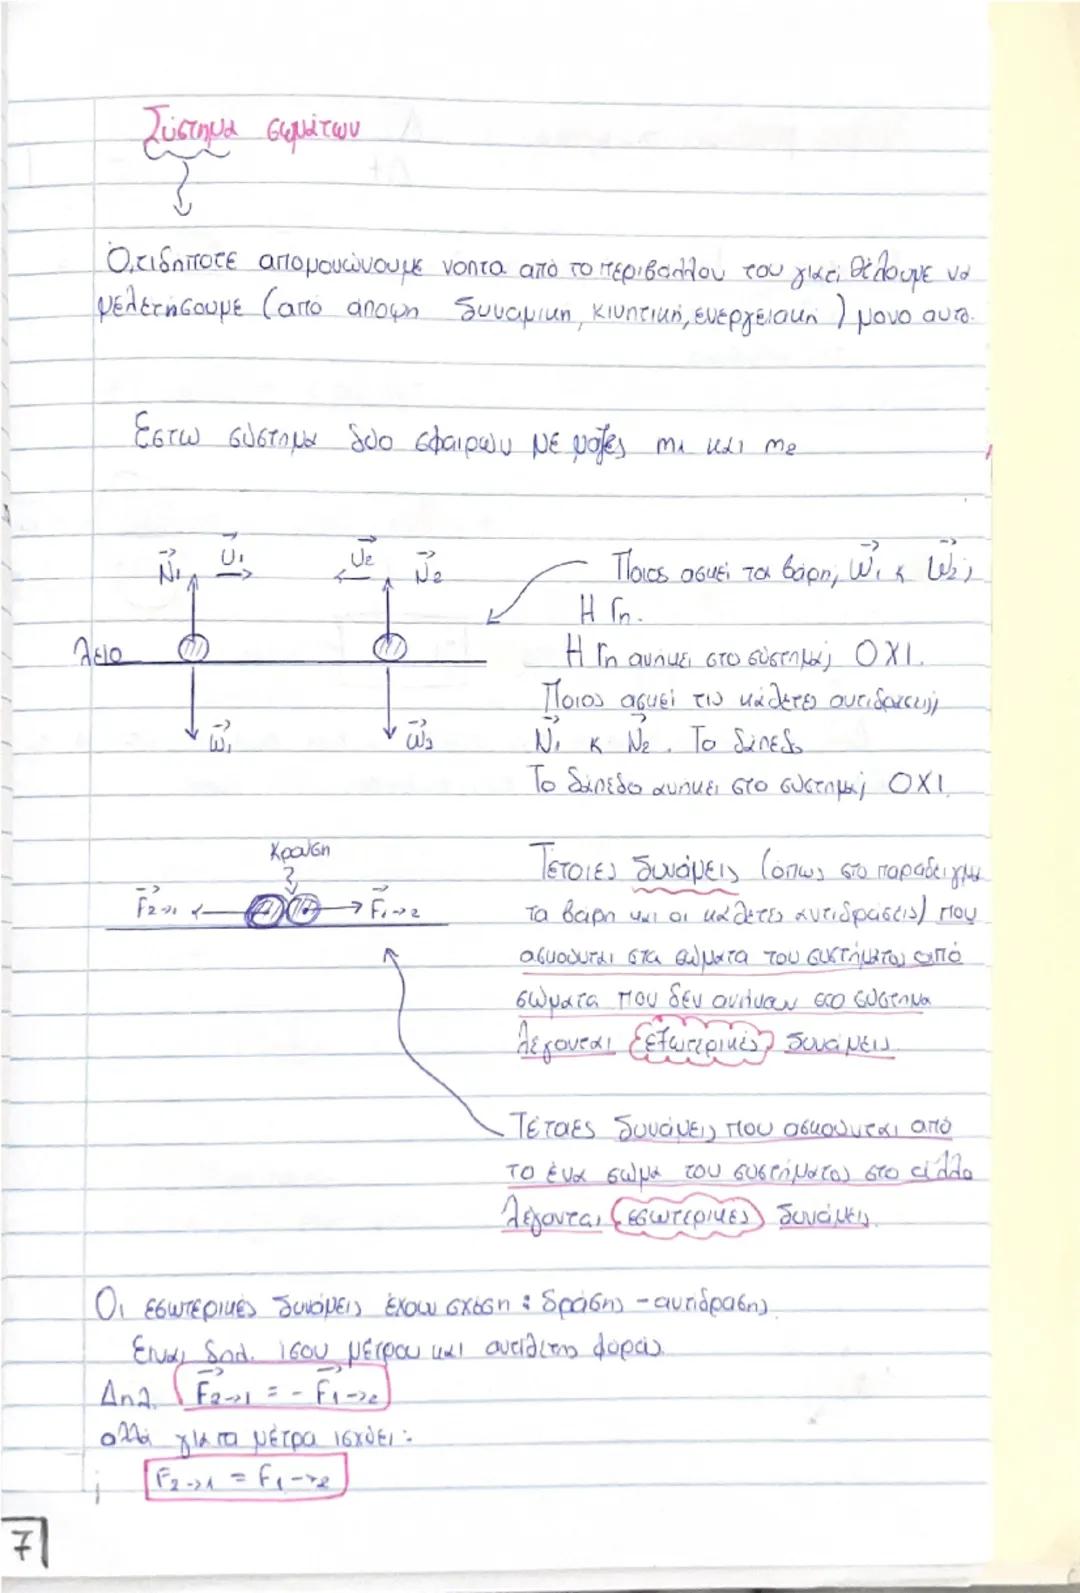 Σύστημα σωμάτων
Ό,τιδήποτε απομονώνουμε νοητα από το περιβάλλον του γιατί θέλουμε να
μελετήσουμε (από άποψη δυναμικη, κινητική, ενεργειακη) μονο αυτο.
Εστω σύστημα δύο σφαιρών με μάζες m1 και m2
N1 U1 U2 N2
λειο
W1 W2
Ποιος ασκεί τα βάρη, W1 κ W2;
Η Γη.
Η Γη ανήκει στο σύστημα; ΟΧΙ.
Ποιος ασκεί τις κάθετες αντιδράσεις;
N1 κ N2. Το δάπεδο
Το δάπεδο ανήκει στο σύστημα; ΟΧΙ.
Κρούση
F2→1 F1→2
Τέτοιες δυνάμεις (όπως στο παράδειγμα
τα βαρη και οι κάθετες αντιδράσεις) που
ασκούνται στα σώματα του συστήματος από
σώματα που δεν ανήκουν στο σύστημα
λέγονται εξωτερικές δυνάμεις.
Τέτοιες δυνάμεις που ασκούνται από
το ένα σώμα του συστήματος στο άλλο
λέγονται εσωτερικές δυνάμεις.
Οι εσωτερικές δυνάμεις έχουν σχέση : δράσης - αντίδρασης
Είναι δηλ. ίσου μέτρου και αντίθετης φοράς.
Δηλ. F2→1 = - F1→2
αλλά για τα μέτρα ισχύει :
F2→1 = F1→2
7